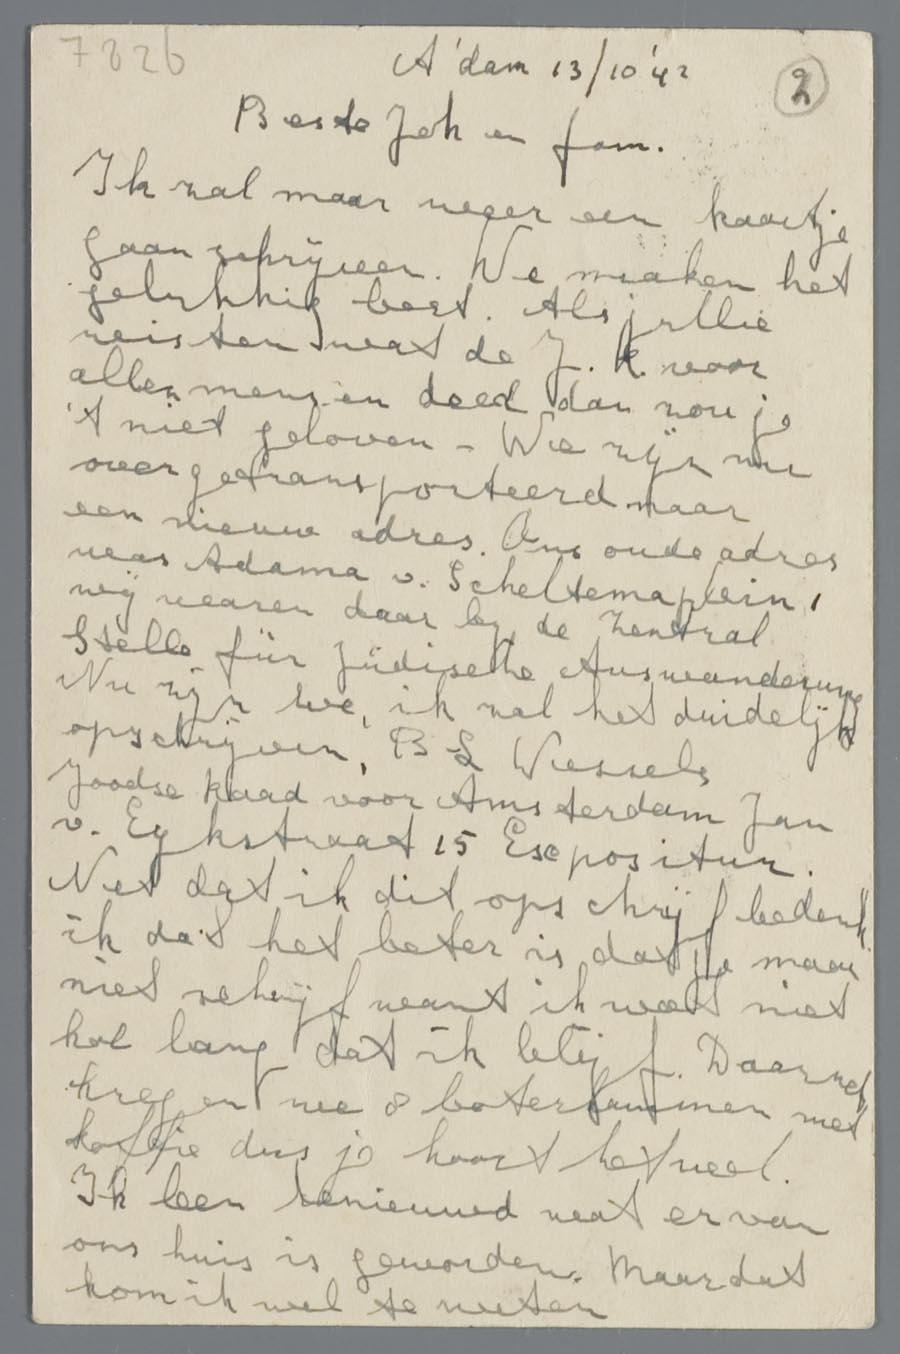 7826
A'dam 13/10 '42
2
Beste Joh en fam.
Ik zal maar weer een kaartje
gaan schrijven. We maken het
gelukkig best. Als jullie
wisten wat de J. R. voor
alle mensen deed dan zou je
't niet geloven - We zijn nu
overgetransporteerd naar
een nieuw adres. Ons oude adres
was Adama v. Scheltemaplein,
wij waren daar bij de Zentral
Stelle für Jüdische Auswanderung
Nu zijn we, ik zal het duidelijk
opschrijven, B S Wessels
Joodse Raad voor Amsterdam Jan
v. Eykstraat 15 Expositur.
Net dat ik dit opschrijf bedenk
ik dat het beter is dat je maar
niet schrijf want ik weet niet
hoe lang dat ik blijf. Daarnet
kregen we 8 boterhammen met
koffie dus je hoort het wel.
Ik ben benieuwd wat er van
ons huis is geworden. Maar dat
kom ik wel te weten